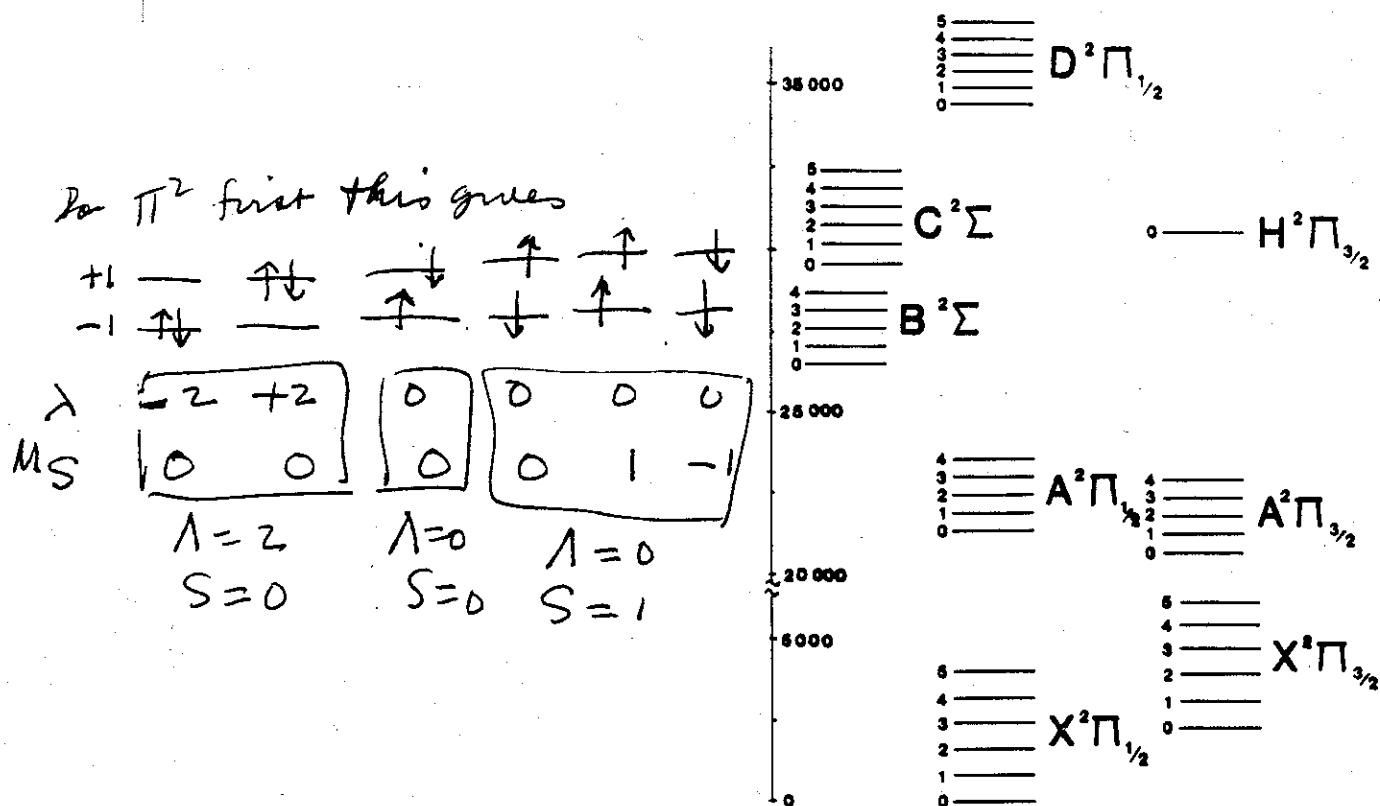 Do π² first this gives
+1
−1
λ -2 +2 0 0 0 0
MS 0 0 0 0 1 -1
Λ=2 Λ=0 Λ=0
S=0 S=0 S=1
35 000
25 000
20 000
5000
0
5
4
3
2
1
0
D²Π1/2
5
4
3
2
1
0
C²Σ
0
H²Π3/2
4
3
2
1
0
B²Σ
4
3
2
1
0
A²Π1/2
4
3
2
1
0
A²Π3/2
5
4
3
2
1
0
X²Π3/2
5
4
3
2
1
0
X²Π1/2